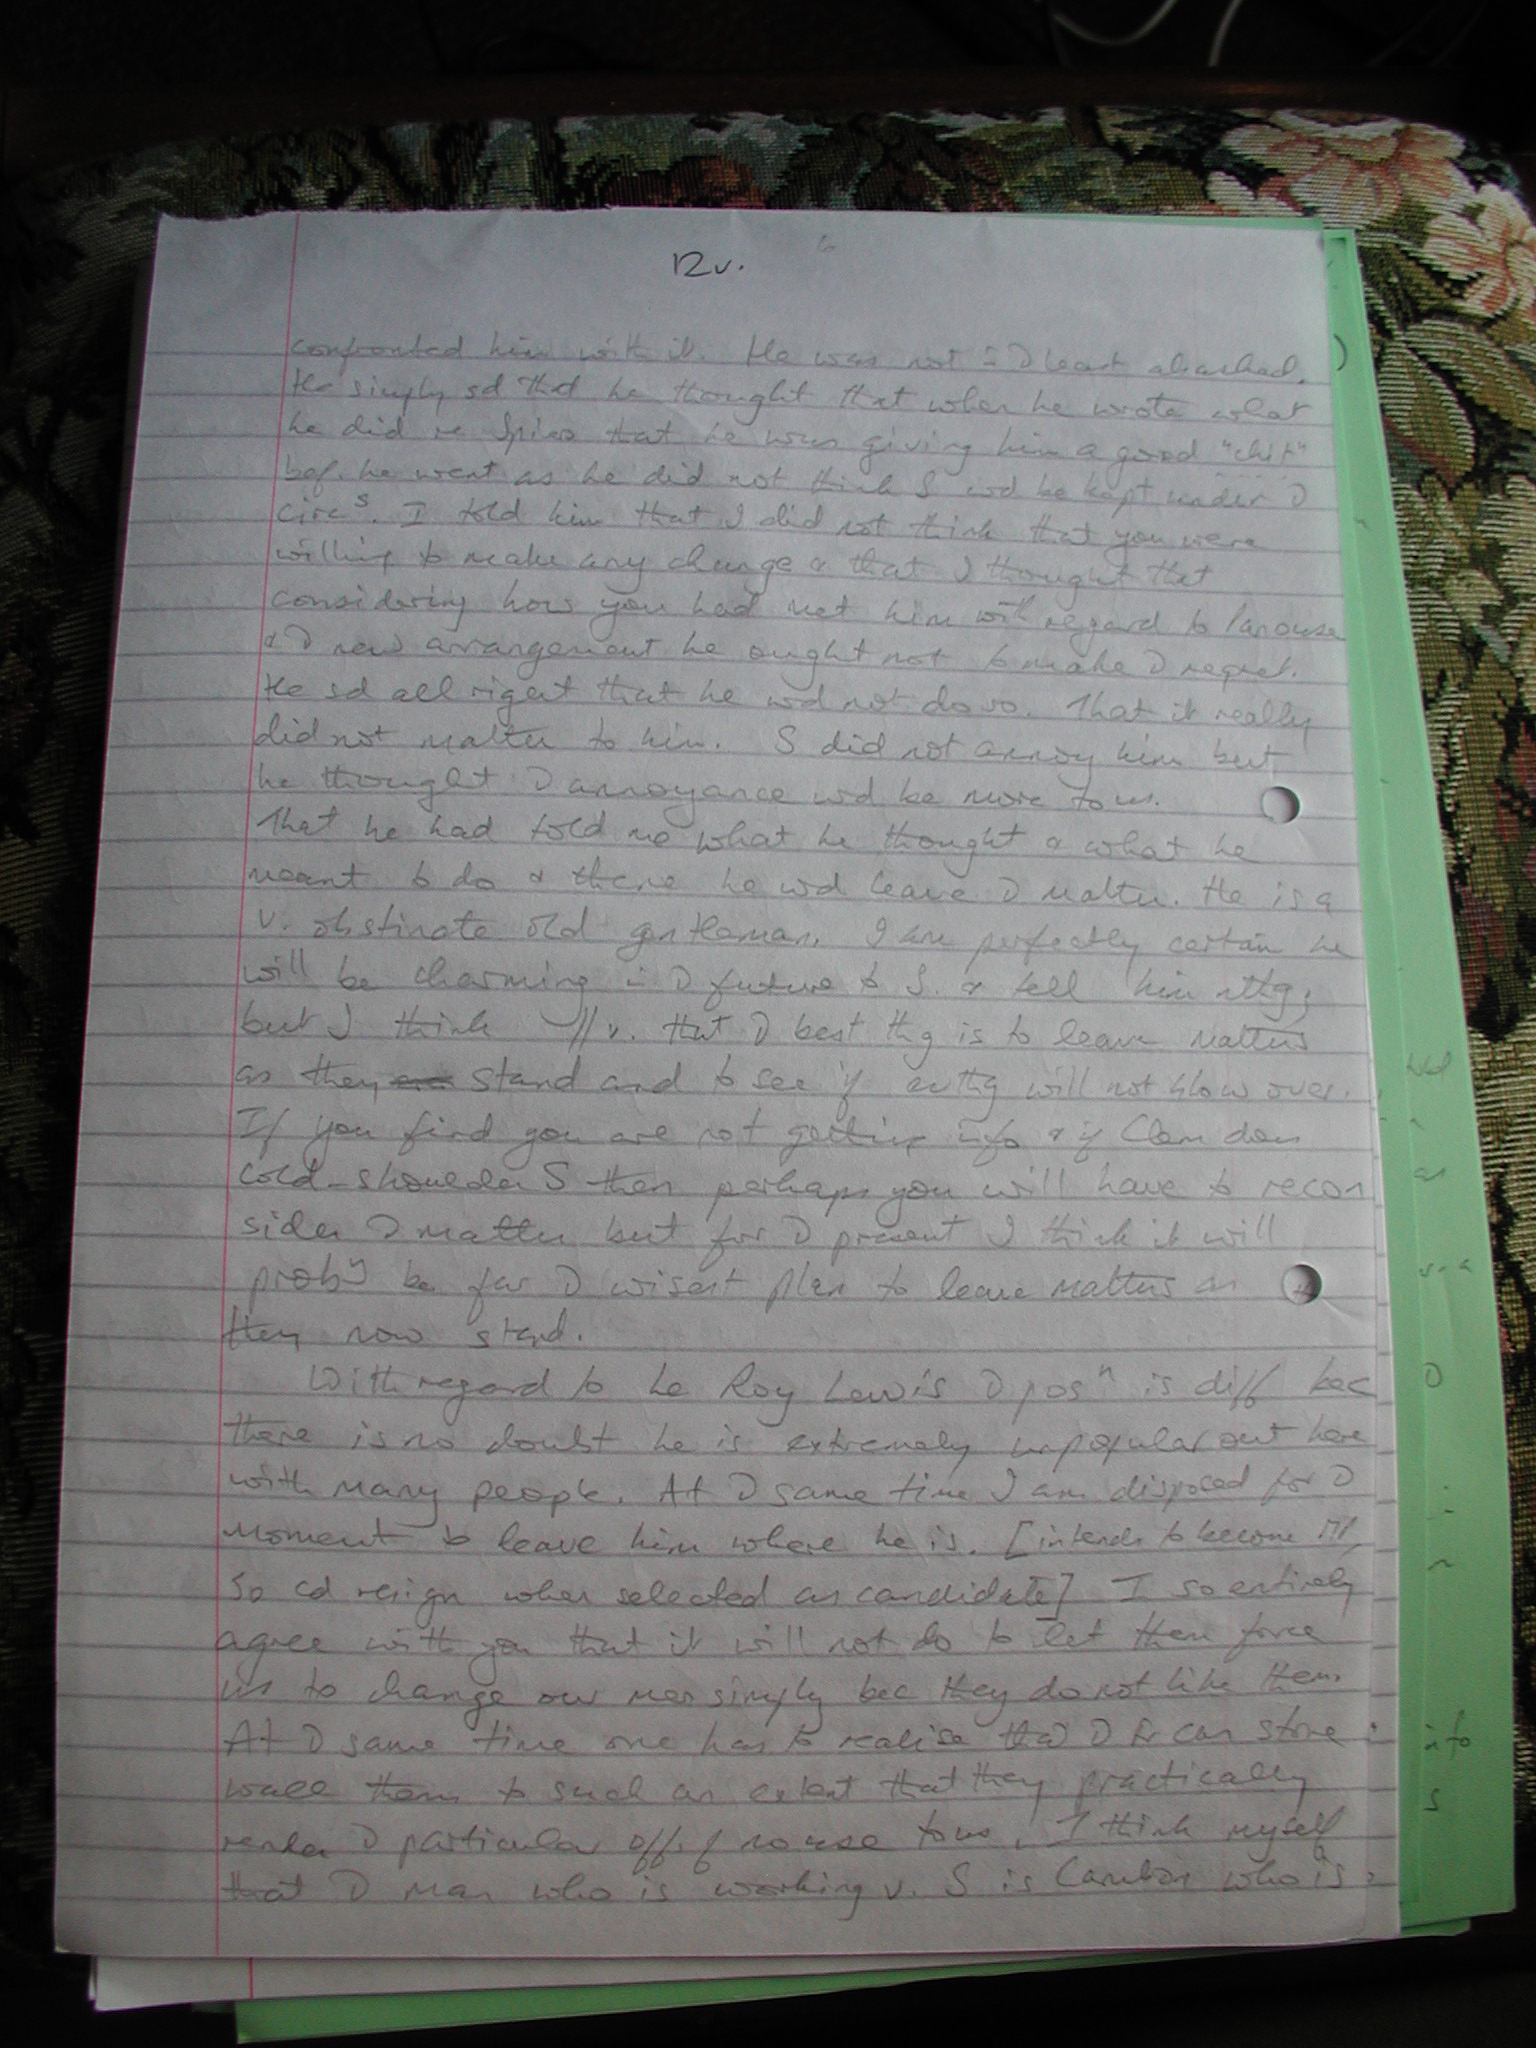 12v.
confronted him with it. He was not i D least abashed.
He simply sd that he thought that when he wrote what
he did re Spiers that he was giving him a good "chit"
bef. he went as he did not think S wd be kept under D
circs. I told him that I did not think that you were
willing to make any change & that I thought that
considering how you had met him with regard to
& D new arrangement he ought not to make D request.
He sd all right that he wd not do so. That it really
did not matter to him. S did not annoy him but
he thought D annoyance wd be more to us.
That he had told me what he thought & what he
meant to do & there he wd leave D matter. He is a
v. obstinate old gentleman. I am perfectly certain he
will be charming i D future to S. & tell him nthg;
but I think that D best thg is to leave matters
as they stand and to see if evthg will not blow over.
If you find you are not getting info & if Clem does
cold-shoulder S then perhaps you will have to recon
sider D matter but for D present I think it will
probly be far D wisest plan to leave matters as
they now stand.
With regard to Le Roy Lewis D posn is diff bec
there is no doubt he is extremely unpopular out here
with many people. At D same time I am disposed for D
moment to leave him where he is. [intends to become MP,
so cd resign when selected as candidate] I so entirely
agree with you that it will not do to let them force
us to change our men simply bec they do not like them.
At D same time one has to realise that D Fr can stone
wall them to such an extent that they practically
render D particular off. of no use to us. I think myself
that D man who is working v. S is Cambon who is